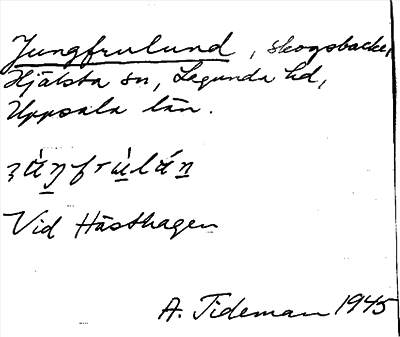 Jungfrulund, skogsbacke,
Hjälsta sn, Lagunda hd,
Uppsala län.
Vid Hästhagen
A. Tideman 1945